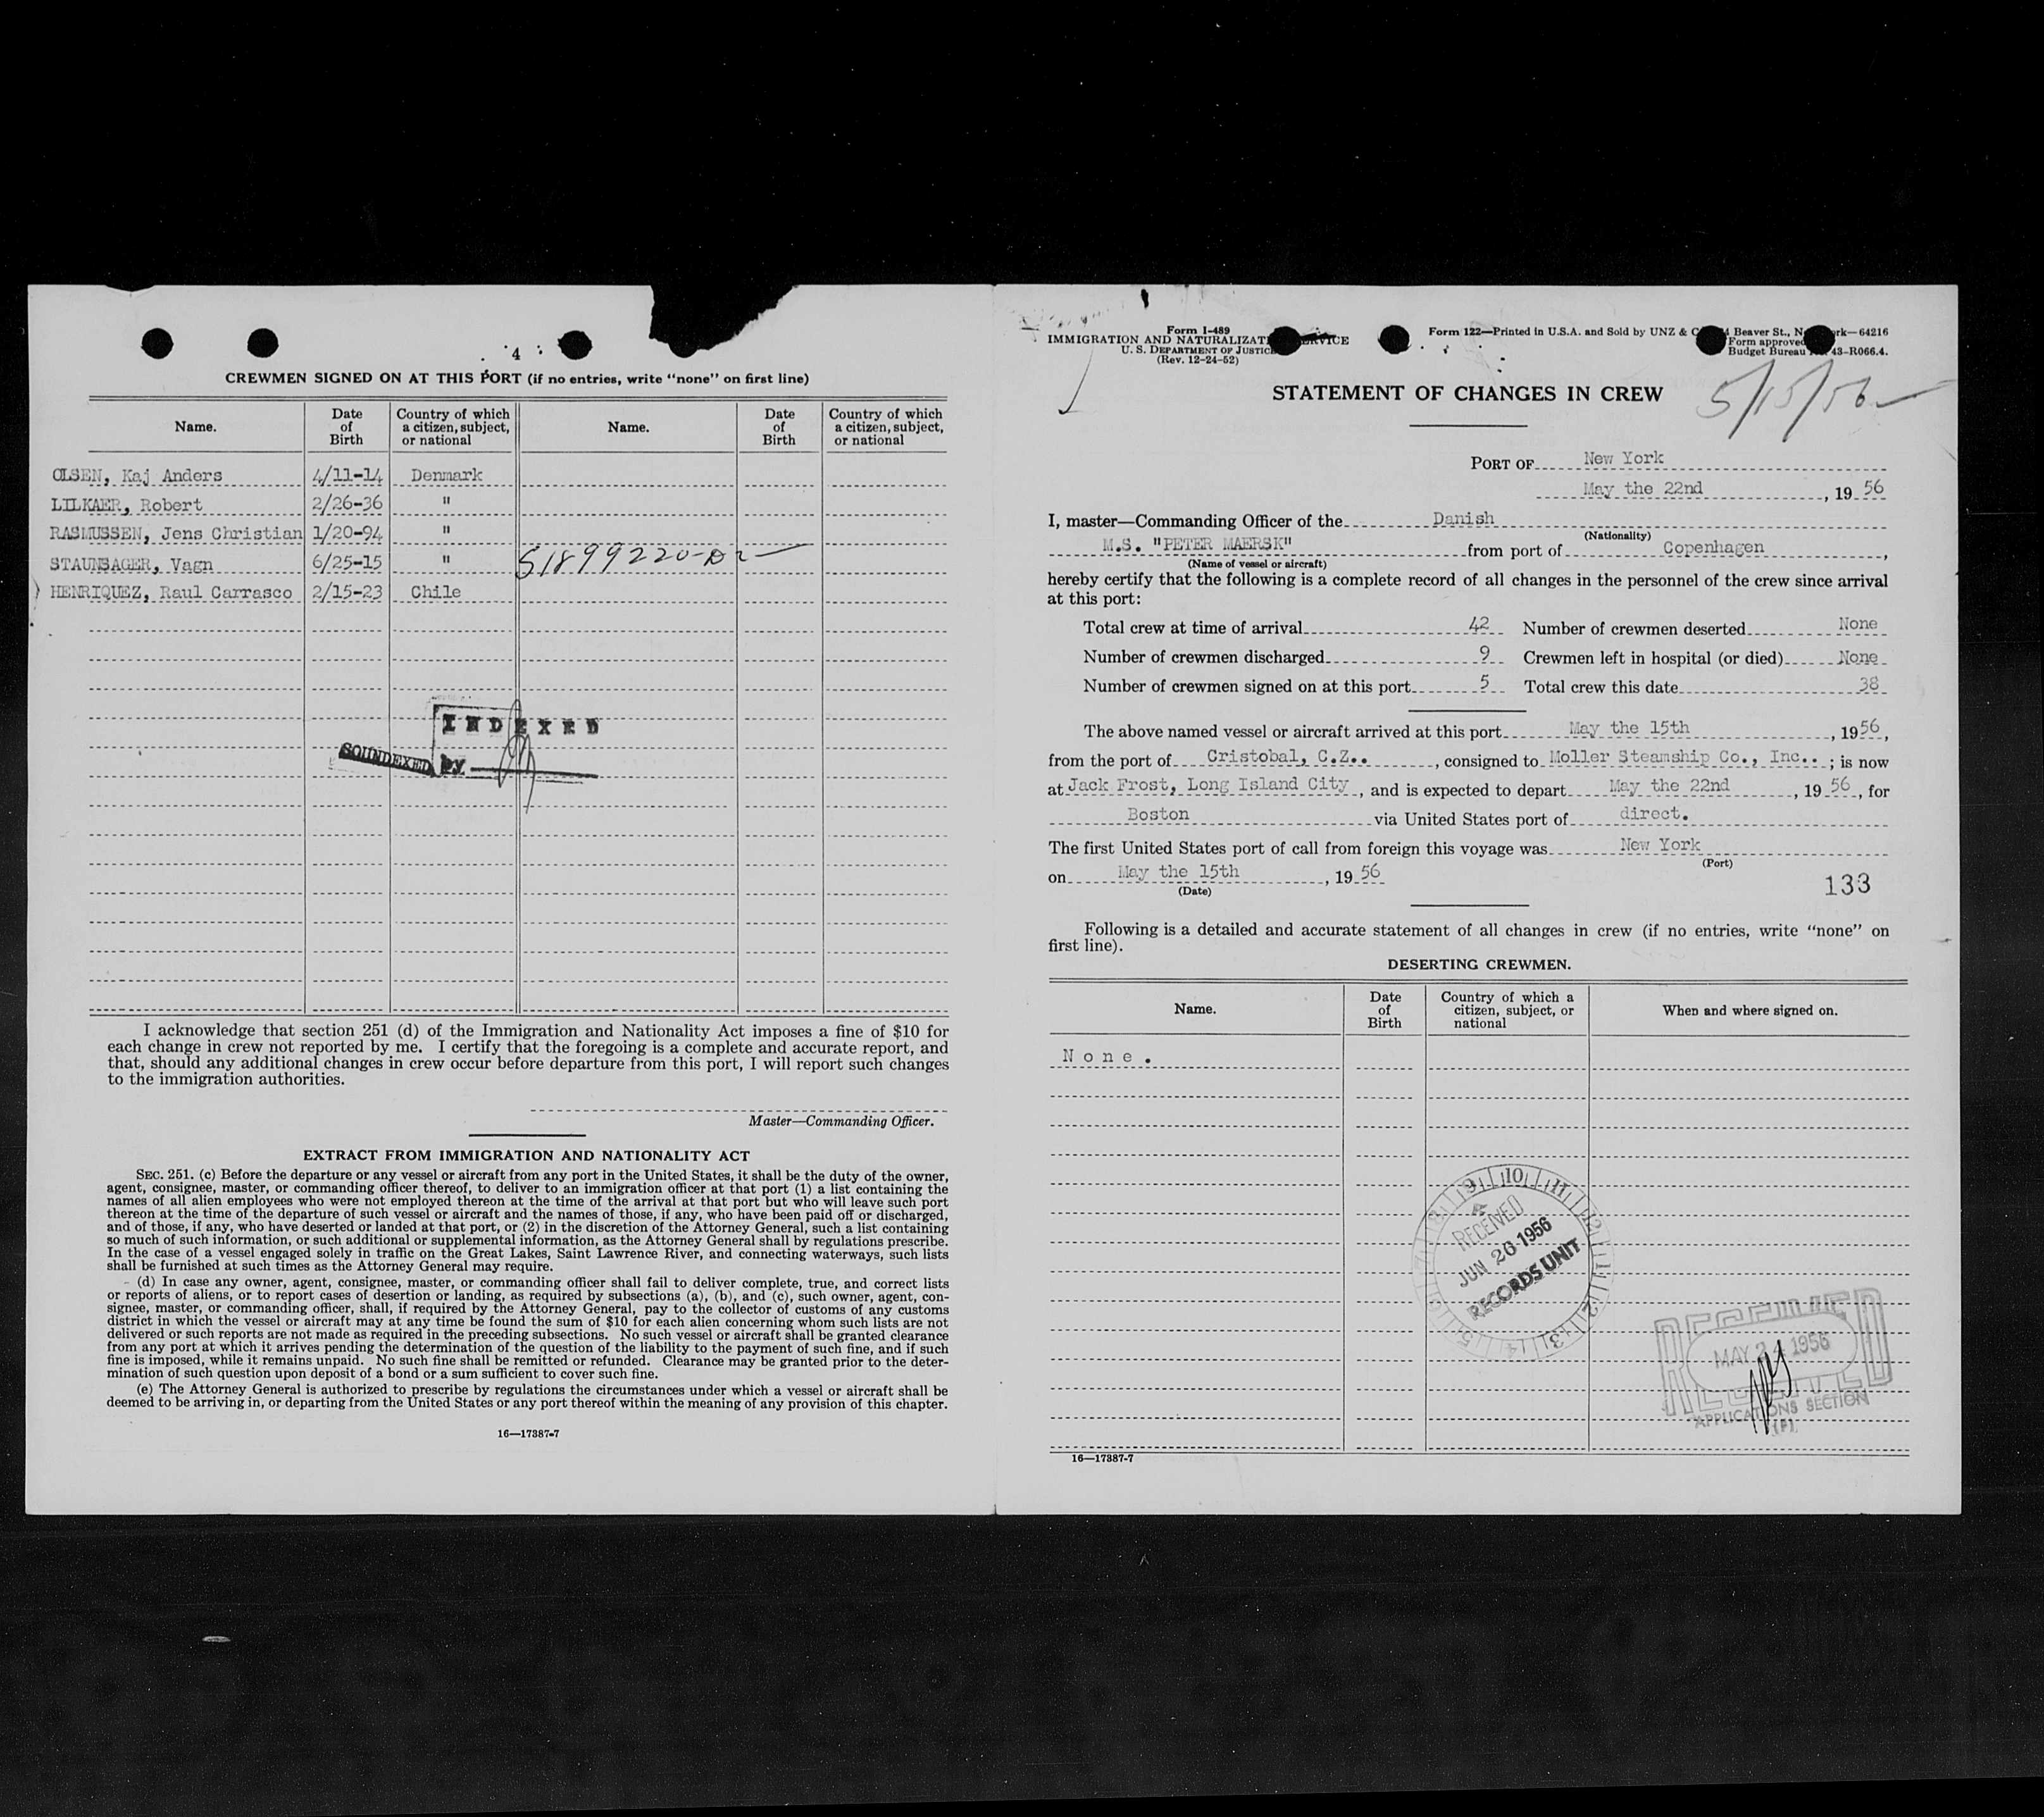 4
CREWMEN SIGNED ON AT THIS PORT (if no entries, write “none” on first line)
Name. Date of Birth Country of which a citizen, subject, or national Name. Date of Birth Country of which a citizen, subject, or national
OLSEN, Kaj Anders 4/11-14 Denmark
LILKAER, Robert 2/26-36 "
RASMUSSEN, Jens Christian 1/20-94 "
STAUNSAGER, Vagn 6/25-15 "
HENRIQUEZ, Raul Carrasco 2/15-23 Chile
INDEXED
SOUNDEXED by
I acknowledge that section 251 (d) of the Immigration and Nationality Act imposes a fine of $10 for
each change in crew not reported by me. I certify that the foregoing is a complete and accurate report, and
that, should any additional changes in crew occur before departure from this port, I will report such changes
to the immigration authorities.
Master—Commanding Officer.
EXTRACT FROM IMMIGRATION AND NATIONALITY ACT
SEC. 251. (c) Before the departure or any vessel or aircraft from any port in the United States, it shall be the duty of the owner,
agent, consignee, master, or commanding officer thereof, to deliver to an immigration officer at that port (1) a list containing the
names of all alien employees who were not employed thereon at the time of the arrival at that port but who will leave such port
thereon at the time of the departure of such vessel or aircraft and the names of those, if any, who have been paid off or discharged,
and of those, if any, who have deserted or landed at that port, or (2) in the discretion of the Attorney General, such a list containing
so much of such information, or such additional or supplemental information, as the Attorney General shall by regulations prescribe.
In the case of a vessel engaged solely in traffic on the Great Lakes, Saint Lawrence River, and connecting waterways, such lists
shall be furnished at such times as the Attorney General may require.
(d) In case any owner, agent, consignee, master, or commanding officer shall fail to deliver complete, true, and correct lists
or reports of aliens, or to report cases of desertion or landing, as required by subsections (a), (b), and (c), such owner, agent, con-
signee, master, or commanding officer, shall, if required by the Attorney General, pay to the collector of customs of any customs
district in which the vessel or aircraft may at any time be found the sum of $10 for each alien concerning whom such lists are not
delivered or such reports are not made as required in the preceding subsections. No such vessel or aircraft shall be granted clearance
from any port at which it arrives pending the determination of the question of the liability to the payment of such fine, and if such
fine is imposed, while it remains unpaid. No such fine shall be remitted or refunded. Clearance may be granted prior to the deter-
mination of such question upon deposit of a bond or a sum sufficient to cover such fine.
(e) The Attorney General is authorized to prescribe by regulations the circumstances under which a vessel or aircraft shall be
deemed to be arriving in, or departing from the United States or any port thereof within the meaning of any provision of this chapter.
16—17387-7
Form I-489
IMMIGRATION AND NATURALIZAT
U. S. DEPARTMENT OF JUSTIC
(Rev. 12-24-52)
Form 122—Printed in U.S.A. and Sold by UNZ & C Beaver St., N rk—64216
Form approved
Budget Bureau 43-R066.4.
STATEMENT OF CHANGES IN CREW
5/15/56
PORT OF New York
May the 22nd, 19 56
I, master—Commanding Officer of the Danish
(Nationality)
M.S. "PETER MAERSK" from port of Copenhagen,
(Name of vessel or aircraft)
hereby certify that the following is a complete record of all changes in the personnel of the crew since arrival
at this port:
Total crew at time of arrival 42 Number of crewmen deserted None
Number of crewmen discharged 9 Crewmen left in hospital (or died) None
Number of crewmen signed on at this port 5 Total crew this date 38
The above named vessel or aircraft arrived at this port May the 15th, 1956,
from the port of Cristobal, C.Z.., consigned to Moller Steamship Co., Inc..; is now
at Jack Frost, Long Island City, and is expected to depart May the 22nd, 19 56, for
Boston via United States port of direct.
The first United States port of call from foreign this voyage was New York
(Port)
on May the 15th, 19 56
(Date)
133
Following is a detailed and accurate statement of all changes in crew (if no entries, write “none” on
first line).
DESERTING CREWMEN.
Name. Date of Birth Country of which a citizen, subject, or national When and where signed on.
None.
RECEIVED
JUN 26 1956
RECORDS UNIT
RECEIVED
MAY 24 1956
APPLICATIONS SECTION
(P)
16—17387-7